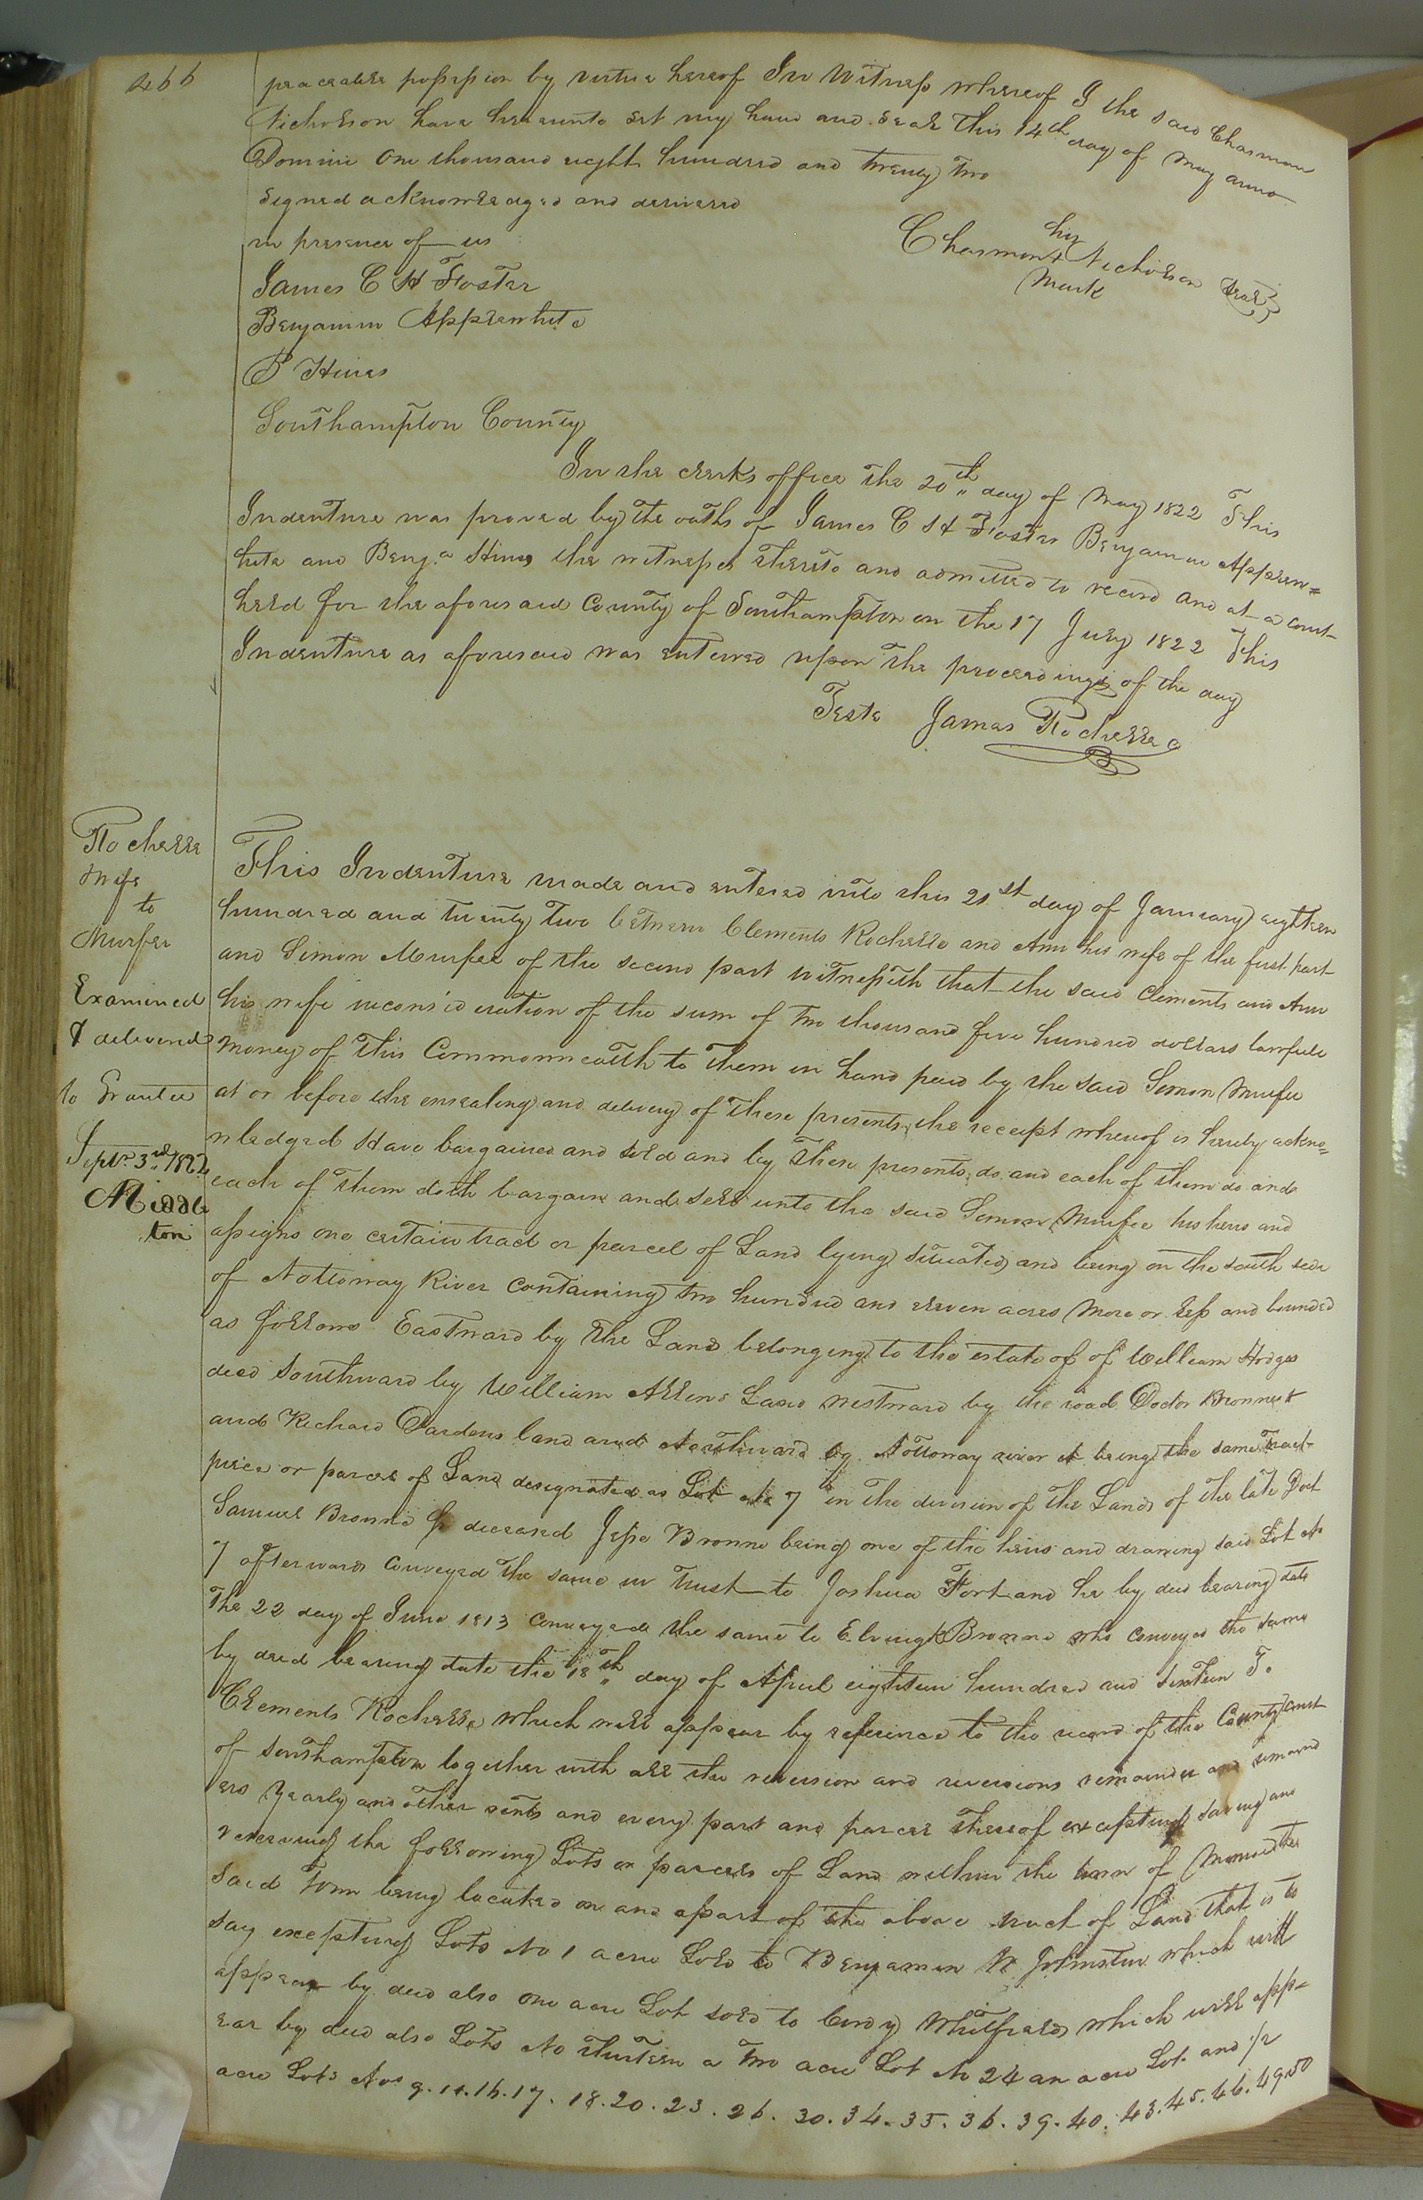 466
peaceable possession by virtue hereof In Witness whereof I the said Charmon
Nicholson have hereunto set my hand and seal this 14th day of May anno
Domini One thousand eight hundred and twenty two
Signed acknowledged and delivered
in presence of us
his
Charmon + Nicholson Seal
Mark
James C H Foster
Benjamin Applewhite
B Hines
Southampton County
In the clerks office the 20th day of May 1822 This
Indenture was proved by the oaths of James C H Foster Benjamin Applew=
hite and Benja Hines the witnesses thereto and admitted to record and at a court
held for the aforesaid County of Southampton on the 17 July 1822 This
Indenture as aforesaid was entered upon the proceedings of the day
Teste James Rochelle
Rochelle
Wife
to
Murfee
Examined
& delivered
to Grantee
Septr 3rd 1822
Middle
ton
This Indenture made and entered into this 21st day of January eighteen
hundred and twenty two between Clements Rochelle and Ann his wife of the first part
and Simon Murfee of the second part Witnesseth that the said Clements and Ann
his wife inconsideration of the sum of two thousand five hundred dollars lawfull
money of this Commonwealth to them in hand paid by the said Simon Murfee
at or before the ensealing and delivery of these presents, the receipt whereof is hereby ackno=
wledged Have bargained and sold and by these presents do and each of them do and
each of them doth bargain and sell unto the said Simon Murfee his heirs and
assigns one certain tract or parcel of Land lying situated and being on the south side
of Nottoway River Containing two hundred and eleven acres more or less and bounded
as follows Eastward by the Land belonging to the estate of of William Hodges
deed Southward by William Allens Land westward by the road Doctor Brownes
and Richard Dardens land and Northward by Nottoway river it being the same Tract
piece or parcel of Land designated as Lot No 7 in the division of the Lands of the late Doct
Samuel Browne deceased Jesse Browne being one of the heirs and drawing said Lot No
7 afterwards conveyed the same in Trust to Joshua Fort and he by deed bearing date
The 22 day of June 1813 conveyed the same to Browne who conveyed the same
by deed bearing date the 18th day of April eighteen hundred and sixteen To
Clements Rochelle which will appear by reference to the record of the County court
of Southampton together with all the reversion and reversions remainder and remaind
ers yearly and other rents and every part and parcel thereof excepting saving and
reserving the following Lots or parcels of Land within the town of Monroe the
said Town being located on and apart of the above tract of Land that is to
say excepting Lots No 1 acre Sold to Benjamin W Johnston which will
appear by deed also one acre Lot sold to Whitfield which will app=
ear by deed also Lots No thirteen a two acre Lot No 24 an acre Lot and 1/2
acre Lots Nos 9. 14. 16. 17. 18. 20. 23. 26. 30. 34. 35. 36. 39. 40. 43. 45. 46. 49. 50